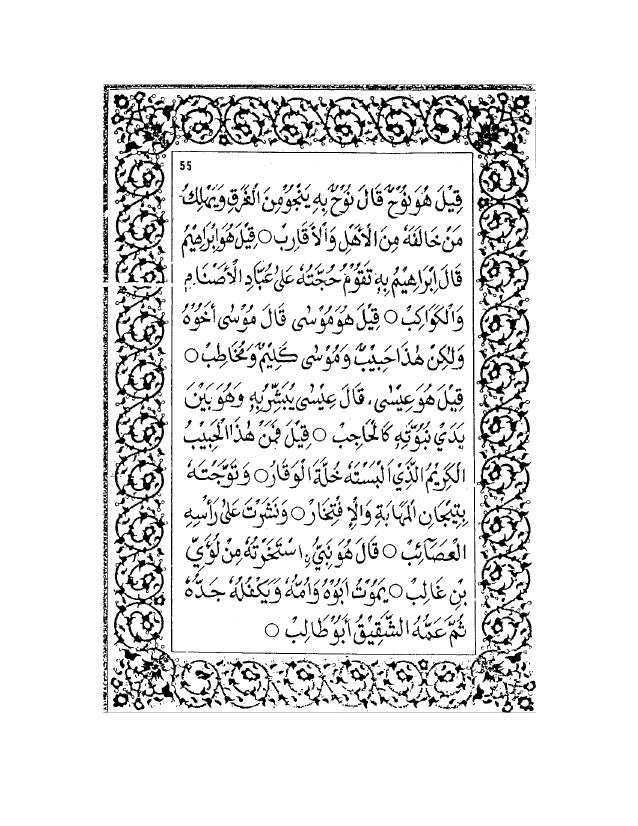 55
قِيْلَ هُوَ نُوْحٌ قَالَ نُوْحٌ بِهِ يَنْجُوْ مِنَ الْغَرَقِ وَيَهْلِكُ
مَنْ خَالَفَهُ مِنَ الْأَهْلِ وَالْأَقَارِبْ ○ قِيْلَ هُوَ اِبْرَاهِيْمُ
قَالَ اِبْرَاهِيْمُ بِهِ تَقُوْمُ حُجَّتُهُ عَلىٰ عُبَّادِ الْأَصْنَامِ
وَالْكَوَاكِبْ ○ قِيْلَ هُوَ مُوْسٰى قَالَ مُوْسٰى أَخُوْهُ
وَلٰكِنْ هٰذَا حَبِيْبٌ وَمُوْسٰى كَلِيْمٌ وَمُخَاطِبْ ○
قِيْلَ هُوَ عِيْسٰى، قَالَ عِيْسٰى يُبَشِّرُ بِهِ وَهُوَ بَيْنَ
يَدَيْ نُبُوَّتِهِ كَالْحَاجِبْ ○ قِيْلَ فَمَنْ هٰذَا الْحَبِيْبُ
الْكَرِيْمُ الَّذِيْ اَلْبَسْتَهُ حُلَّةَ الْوَقَارِ ○ وَتَوَّجْتَهُ
بِتِيْجَانِ الْمَهَابَةِ وَالْإِفْتِخَارْ ○ وَنَشَرْتَ عَلىٰ رَأْسِهِ
الْعَصَآئِبْ ○ قَالَ هُوَ نَبِيُّ ٍۨاسْتَخَرْتُهُ مِنْ لُؤَيِّ
بْنِ غَالِبْ ○ يَمُوْتُ اَبُوْهُ وَاُمُّهُ وَيَكْفُلُهُ جَدُّهُ
ثُمَّ عَمُّهُ الشَّقِيْقُ أَبُوْ طَالِبْ ○